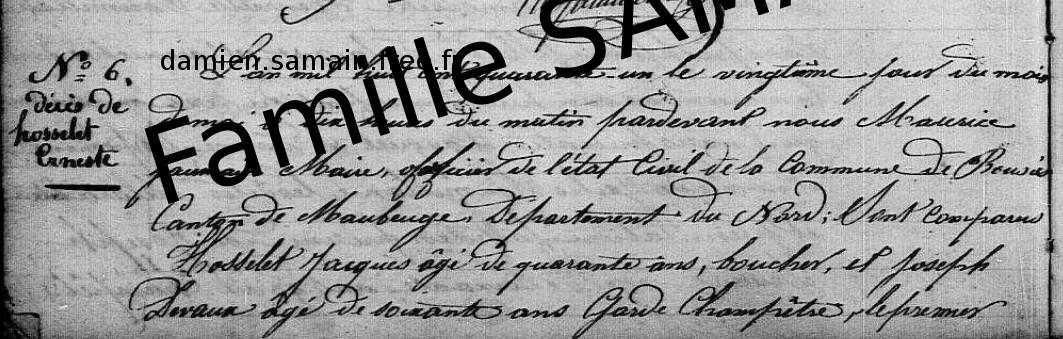 Famille SAMA
damien.samain.free.fr
N° 6.
décès de
hosselet
Erneste
L'an mil huit cent quarante-un le vingtième jour du mois
de mai à dix heures du matin pardevant nous Maurice
Maire, officier de l'état Civil de la Commune de
Canton de Maubeuge, Département du Nord; Sont Comparus
Hosselet Jacques âgé de quarante ans, boucher, et joseph
Devaux âgé de soixante ans Garde Champêtre, le premier